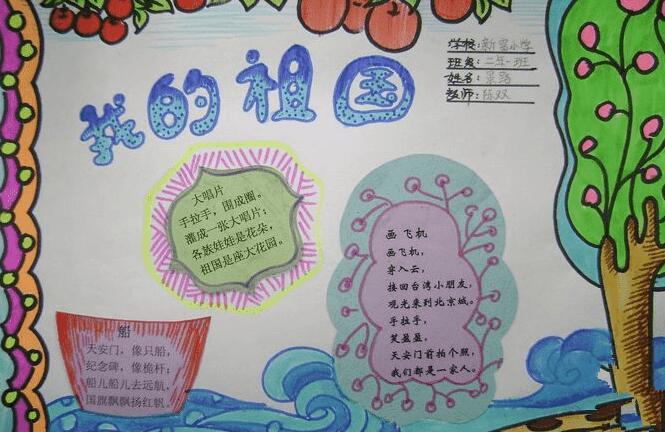 我的祖国
学校:新富小学
班级:二年一班
姓名:
教师:陈双
大唱片
手拉手,围成圈。
灌成一张大唱片;
各族娃娃是花朵,
祖国是座大花园。
画飞机
画飞机,
穿入云,
接回台湾小朋友,
观光来到北京城。
手拉手,
笑盈盈,
天安门前拍个照,
我们都是一家人。
船
天安门,像只船,
纪念碑,像桅杆;
船儿船儿去远航,
国旗飘飘扬红帆。